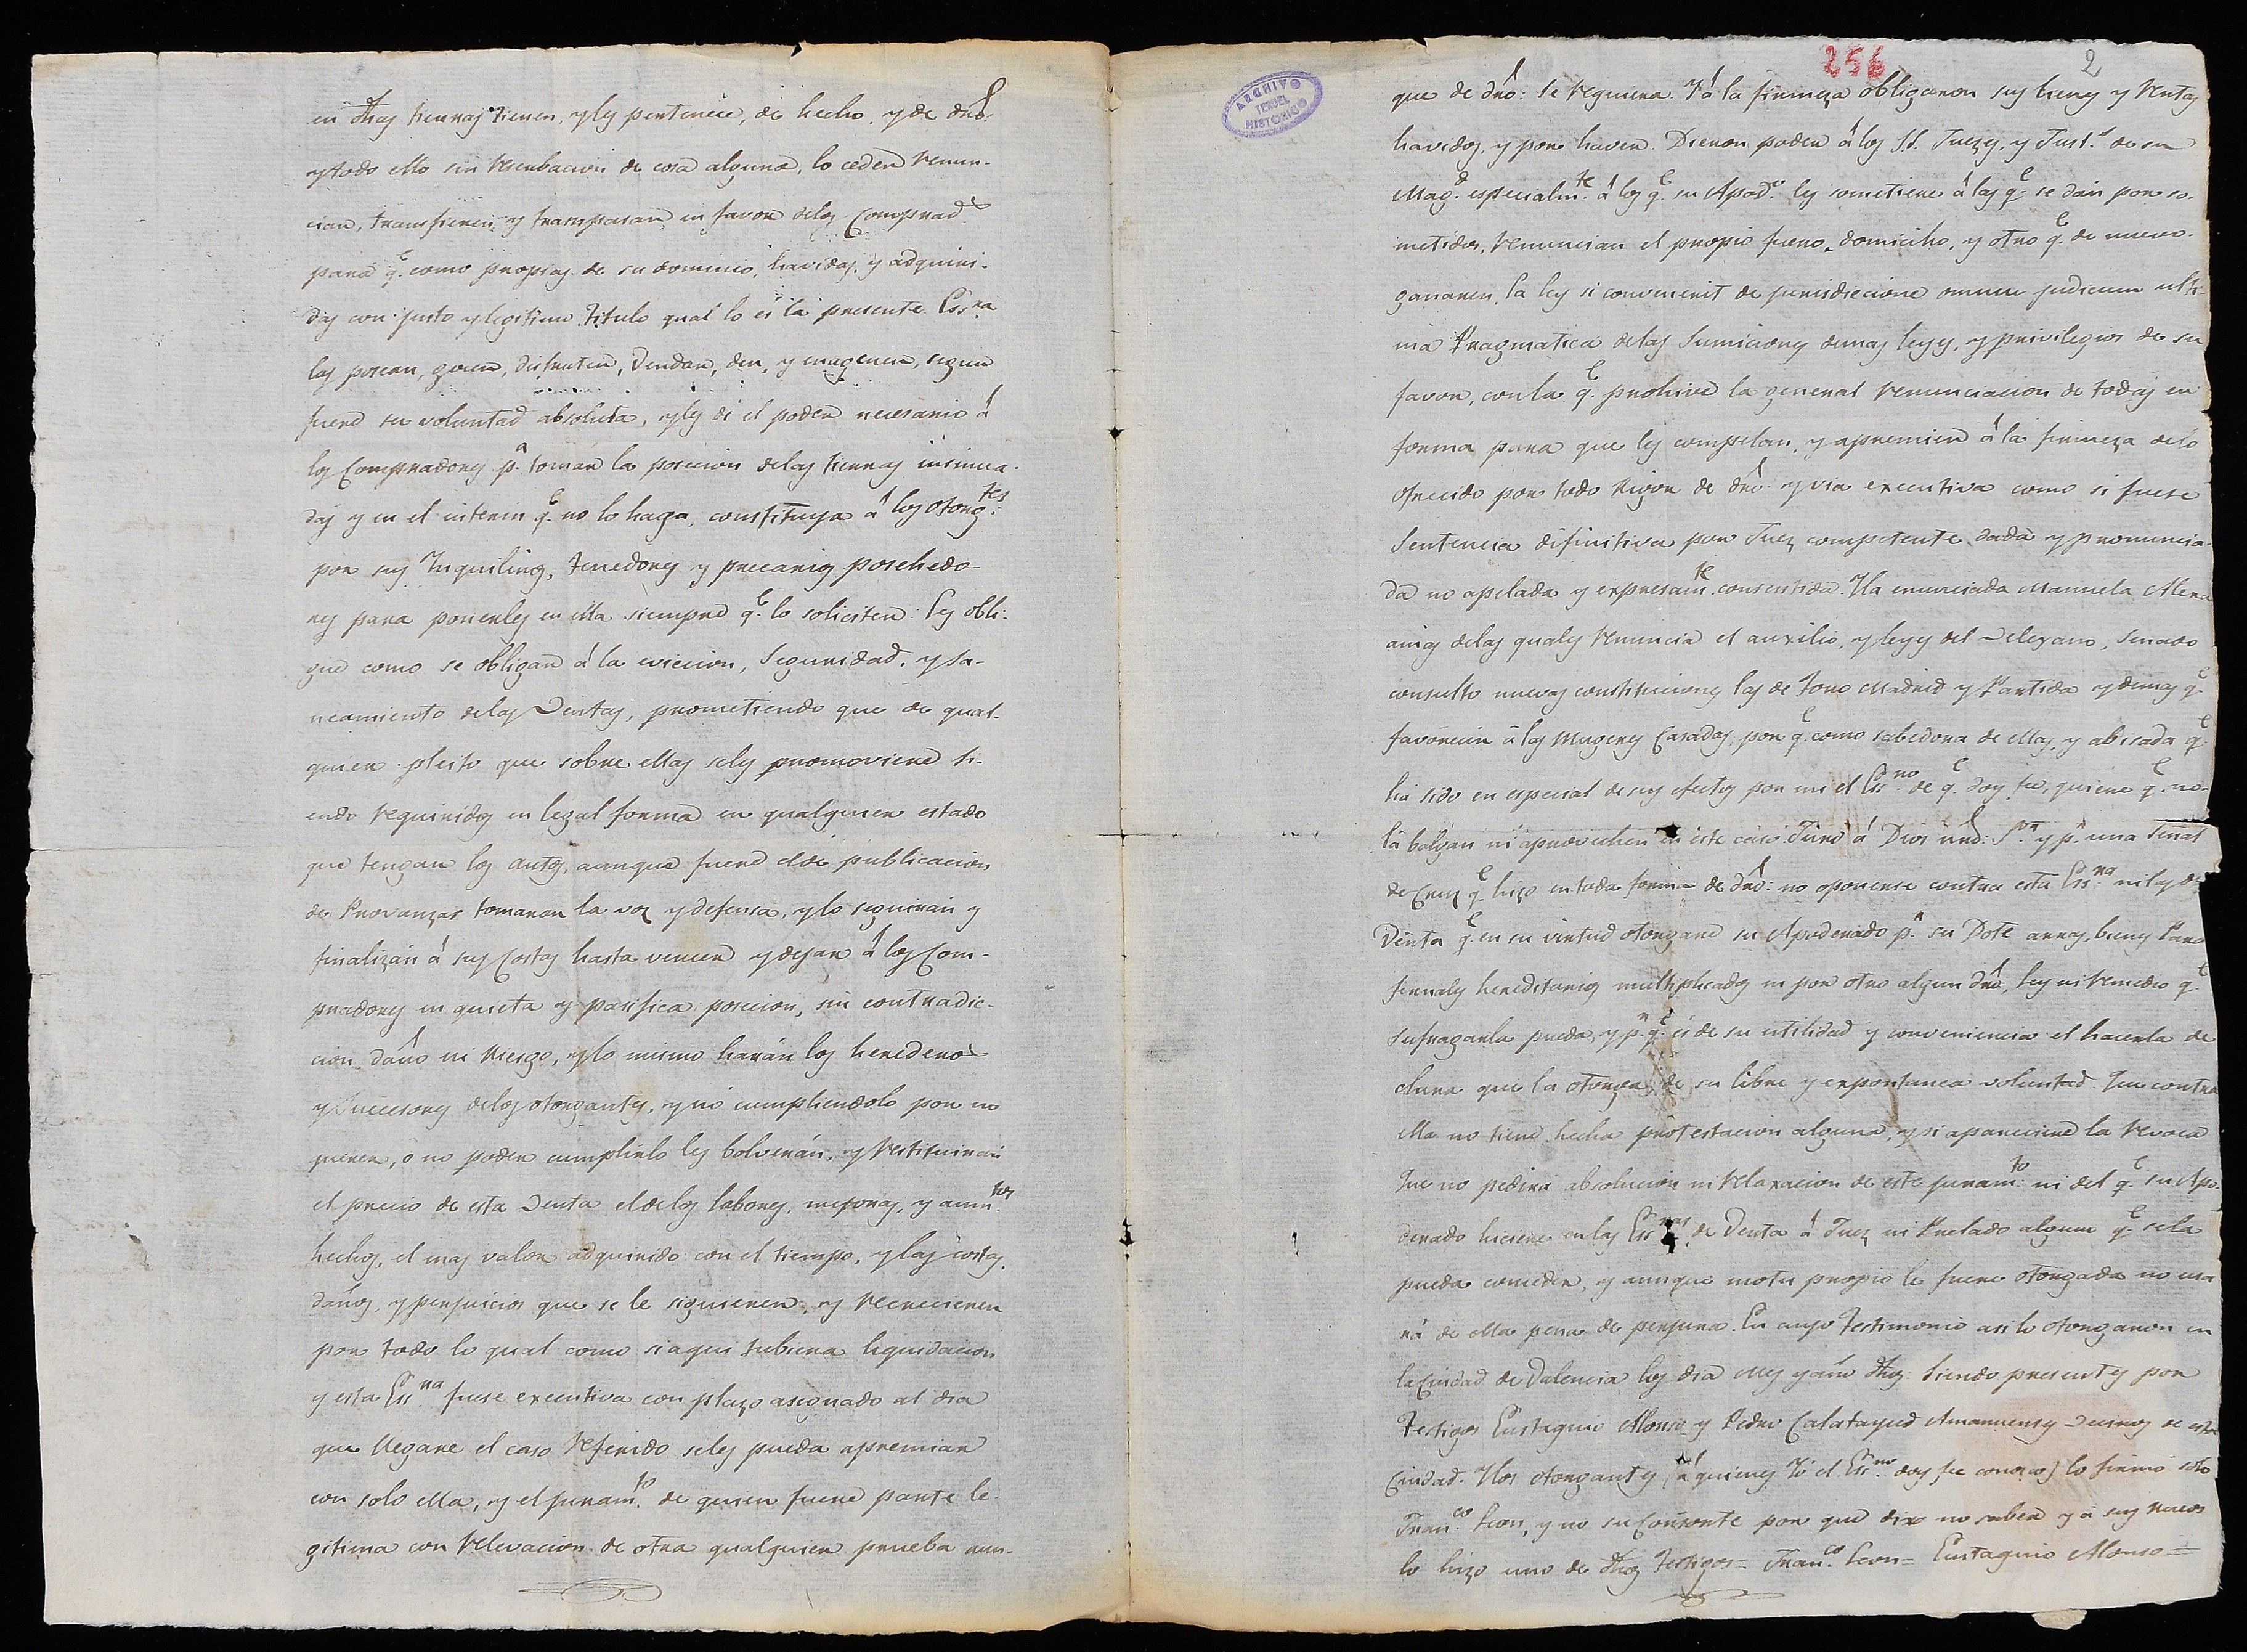 en dhas tierras tienen, y les pertenece, de hecho, y de dró.
y todo ello sin reserbacion de cosa alguna, lo ceden renun-
cian, transfieren, y transpasan en favor delos Comprad.s
para q.e como propias de su dominio, havidas, y adquiri-
das con justo y legitimo titulo qual lo es la presente Ess.ra
las posean, gozen, disfruten, vendan, den, y enagenen, segun
fuere su voluntad absoluta, y les dé el poder necesario á
los Compradores p.a tomar la posecion delas tierras insinua-
das y en el interin q.e no lo haga, constituya á los otorg.tes
por sus Inquilinos, tenedores y precarios posehedo-
res para ponerles en ella siempre q.e lo soliciten: Les obli-
gue como se obligan á la eviccion, Seguridad, y sa-
neamiento delas Ventas, prometiendo que de qual-
quier pleito que sobre ellas seles promoviere si-
endo requiridos en legal forma en qualquier estado
que tengan los autos, aunque fuere el de publicacion
de Provanzas tomaran la voz y defensa, y lo seguirán y
finalizán á sus Costas hasta vencer y dejar á los Com-
pradores en quieta y pasifica posecion, sin contradic-
cion, daño ni riesgo, y lo mismo harán los herederos
y Succesores delos otorgantes, y no cumpliendolo por no
querer, o no poder cumplirlo les bolverán, y restituirán
el precio de esta Venta el delos labores, mejoras, y aum.tos
hechos, el mas valor adquirido con el tiempo, y las costas,
daños, y perjuicios que se le siguieren, y recrecieren
por todo lo qual como si aqui tubiera liquidacion
y esta Ess.ra fuese executiva con plazo asignado al dia
que llegare el caso referido seles pueda apremiar
con solo ella, y el juram.to de quien fuere parte le-
gitima con relevacion de otra qualquier prueba aun-
256 2
ARCHIVO HISTORICO TERUEL
que de dró: se requiera. Y á la firmeza obligaron sus bienes y rentas
havidos, y por haver. Dieron poder á los SS. Juezes, y Just.s de su
Mag.d especialm.te á los q.e su Apod.o les sometiere á las q.e se dán por so-
metidos, renuncian el propio fuero, domicilio, y otro q.e de nuevo
ganaren, la ley si convenerit de jurisdiccione omnium judicum ulti-
ma Pragmatica delas Sumiciones demas leyes, y privilegios de su
favor, con la q.e prohive la general renunciacion de todas en
forma para que les compelan, y apremien á la firmeza delo
ofrecido por todo rigor de dró y via executiva como si fuese
Sentencia difinitiva por Juez competente dada y pronuncia-
da no apelada y expresam.te consentida. Y la enunciada Manuela
delas quales renuncia el auxilio, y leyes del Veleyano, Senado
consulto nuevas constituciones las de Toro Madrid y Partida y demas q.e
favorecen á las Mugeres Casadas, por q.e como sabedora de ellas, y abisada q.e
ha sido en especial de sus efectos por mi el Ess.no de q.e doy fee, quiere q.e no
la balgan ni aprovechen en este caso. Juró á Dios nró: S.or y p.r una Señal
de Cruz q.e hizo en toda forma de dró: no oponerse contra esta Ess.ra ni las de
Venta q.e en su virtud otorgare su Apoderado p.r su Dote arras, bienes Para
fernales hereditarios multiplicados ni por otro algun dró, ley ni remedio q.e
sufragarla pueda, y p.r q.e es de su utilidad y conveniencia el hacerla de
clara que la otorga de su libre y expontanea voluntad. Que contra
ella no tiene hecha protestacion alguna, y si apareciere la revoca
Que no pedira absolucion ni relaxacion de este juram.to ni del q.e su Apo-
derado hiciere en las Ess.ras de Venta á Juez ni Prelado alguno q.e sela
pueda conceder, y aunque motu propio le fuere otorgada no usa
rá de ella pena de perjura. En cuyo testimonio asi lo otorgaron en
la Ciudad de Valencia los dia mes y año dhos: Siendo presentes por
testigos Eustaquio Alonso y Pedro Calatayud Amanuenses Vecinos de esta
Ciudad. Y los otorgantes (á quienes Yó el Ess.no doy fee conosco) lo firmó solo
Fran.co Leon, y no su Consorte por que dixo no saber y á sus ruegos
lo hizo uno de dhos testigos = Fran.co Leon = Eustaquio Alonso =